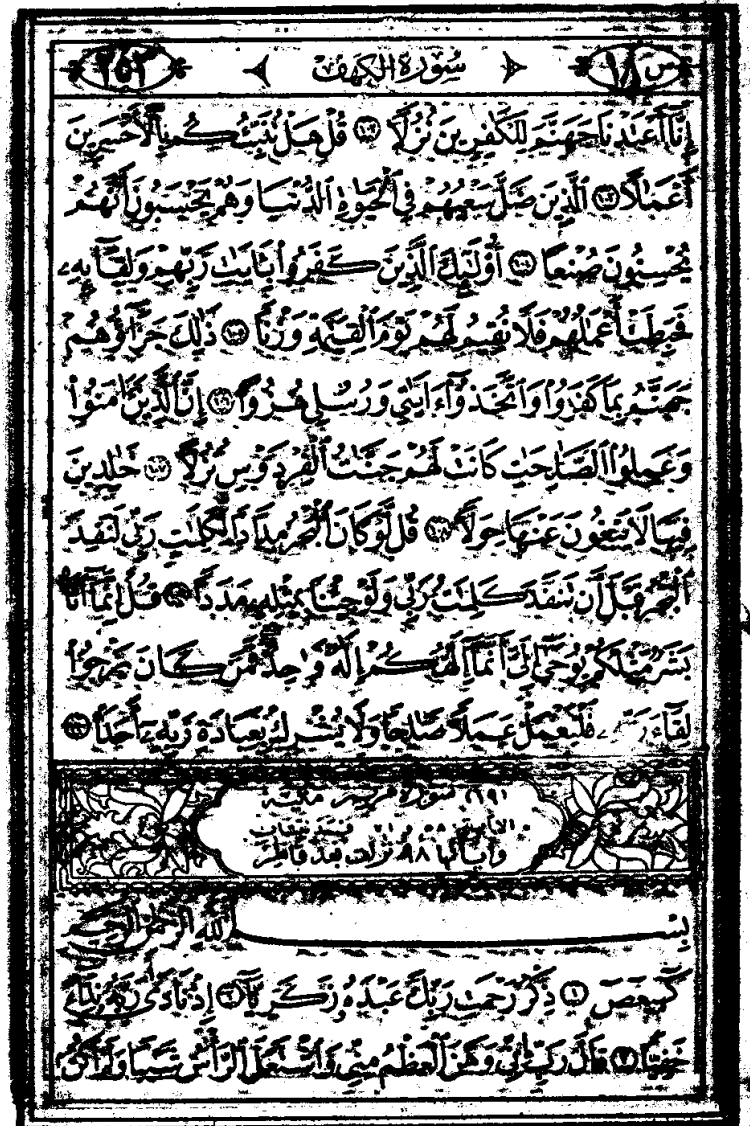 س ١٨ سُورَةُ الكَهْفِ ٢٥٣
إِنَّآ أَعْتَدْنَا جَهَنَّمَ لِلْكَٰفِرِينَ نُزُلًا ١٠٢ قُلْ هَلْ نُنَبِّئُكُم بِٱلْأَخْسَرِينَ
أَعْمَٰلًا ١٠٣ ٱلَّذِينَ ضَلَّ سَعْيُهُمْ فِى ٱلْحَيَوٰةِ ٱلدُّنْيَا وَهُمْ يَحْسَبُونَ أَنَّهُمْ
يُحْسِنُونَ صُنْعًا ١٠٤ أُو۟لَٰٓئِكَ ٱلَّذِينَ كَفَرُوا۟ بِـَٔايَٰتِ رَبِّهِمْ وَلِقَآئِهِۦ
فَحَبِطَتْ أَعْمَٰلُهُمْ فَلَا نُقِيمُ لَهُمْ يَوْمَ ٱلْقِيَٰمَةِ وَزْنًا ١٠٥ ذَٰلِكَ جَزَآؤُهُمْ
جَهَنَّمُ بِمَا كَفَرُوا۟ وَٱتَّخَذُوٓا۟ ءَايَٰتِى وَرُسُلِى هُزُوًا ١٠٦ إِنَّ ٱلَّذِينَ ءَامَنُوا۟
وَعَمِلُوا۟ ٱلصَّٰلِحَٰتِ كَانَتْ لَهُمْ جَنَّٰتُ ٱلْفِرْدَوْسِ نُزُلًا ١٠٧ خَٰلِدِينَ
فِيهَا لَا يَبْغُونَ عَنْهَا حِوَلًا ١٠٨ قُل لَّوْ كَانَ ٱلْبَحْرُ مِدَادًا لِّكَلِمَٰتِ رَبِّى لَنَفِدَ
ٱلْبَحْرُ قَبْلَ أَن تَنفَدَ كَلِمَٰتُ رَبِّى وَلَوْ جِئْنَا بِمِثْلِهِۦ مَدَدًا ١٠٩ قُلْ إِنَّمَآ أَنَا۠
بَشَرٌ مِّثْلُكُمْ يُوحَىٰٓ إِلَىَّ أَنَّمَآ إِلَٰهُكُمْ إِلَٰهٌ وَٰحِدٌ فَمَن كَانَ يَرْجُوا۟
لِقَآءَ رَبِّهِۦ فَلْيَعْمَلْ عَمَلًا صَٰلِحًا وَلَا يُشْرِكْ بِعِبَادَةِ رَبِّهِۦٓ أَحَدًۢا ١١٠
(١٩) سورة مريم مكية
وآياتها ٩٨ نزلت بعد فاطر
بِسْمِ ٱللَّهِ ٱلرَّحْمَٰنِ ٱلرَّحِيمِ
كٓهيعٓصٓ ١ ذِكْرُ رَحْمَتِ رَبِّكَ عَبْدَهُۥ زَكَرِيَّآ ٢ إِذْ نَادَىٰ رَبَّهُۥ نِدَآءً
خَفِيًّا ٣ قَالَ رَبِّ إِنِّى وَهَنَ ٱلْعَظْمُ مِنِّى وَٱشْتَعَلَ ٱلرَّأْسُ شَيْبًا وَلَمْ أَكُنۢ